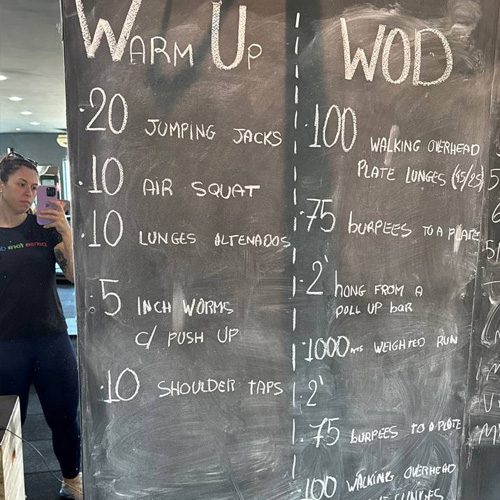 WARM UP
·20 JUMPING JACKS
·10 AIR SQUAT
·10 LUNGES ALTENADOS
·5 INCH WORMS
C/ PUSH UP
·10 SHOULDER TAPS
WOD
·100 WALKING OVERHEAD
PLATE LUNGES (45/25)
·75 BURPEES TO A PLATE
·2' HONG FROM A
POLL UP BAR
·1000mts WEIGHTED RUN
·2'
·75 BURPEES TO A PLATE
100 WALKING OVERHEAD
LUNGES